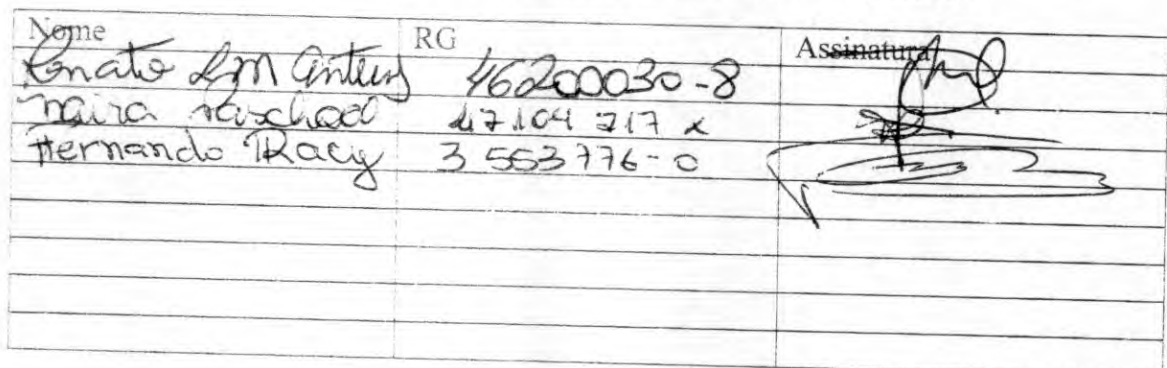 Nome RG Assinatura
Renato LM Anteus 46200030-8
Naira 47.104 717 x
Hernando Racy 3 553776-0